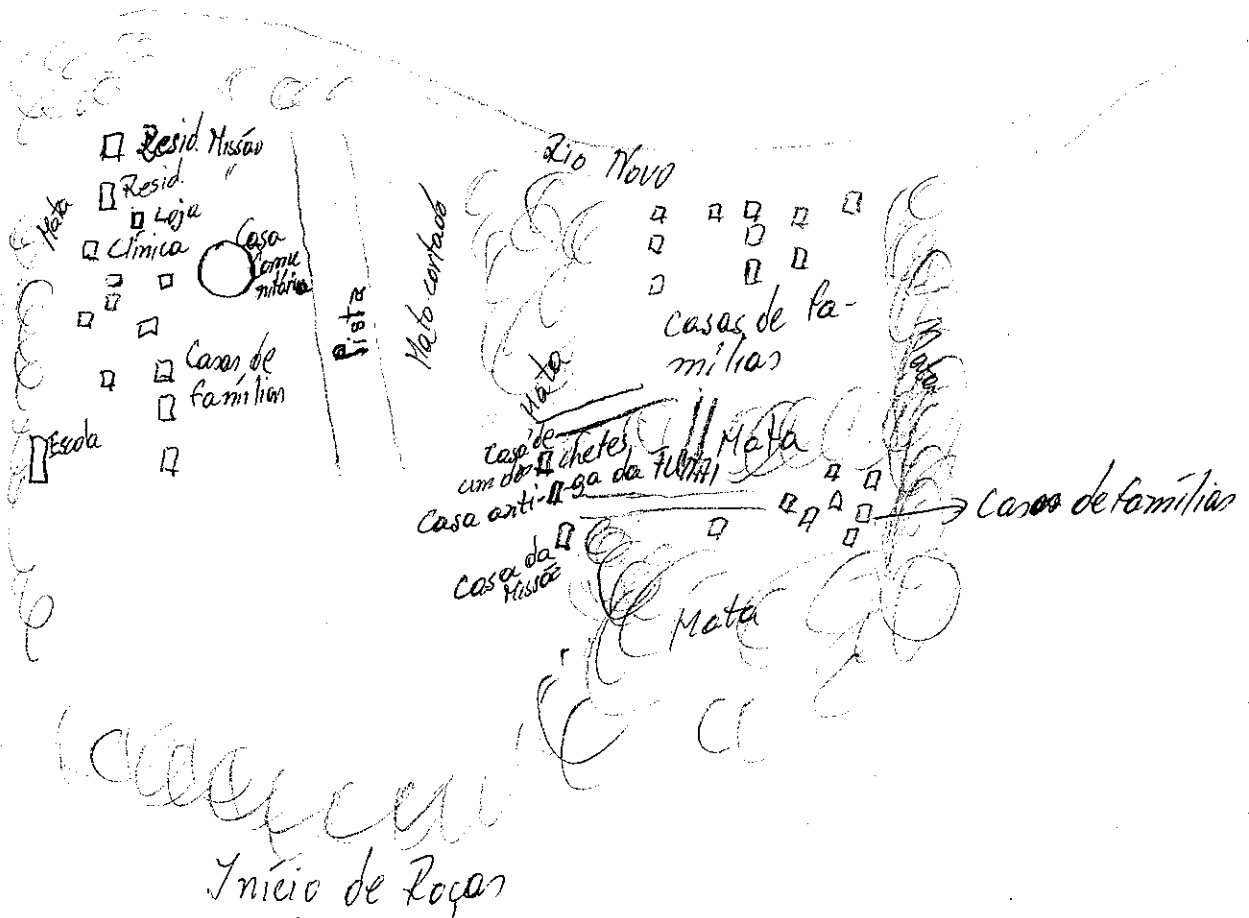 Resid. Missão
Resid. "
Loja
Mata
Clínica
Casa
Comu
nitária
Casas de
famílias
Escola
Pista
Mato cortado
Rio Novo
Casas de fa-
mílias
Mata
Mata
Mata
Casa de
um dos chefes
Casa anti-ga da FUNAI
Casa da
Missão
Casas de famílias
Mata
Início de Roças